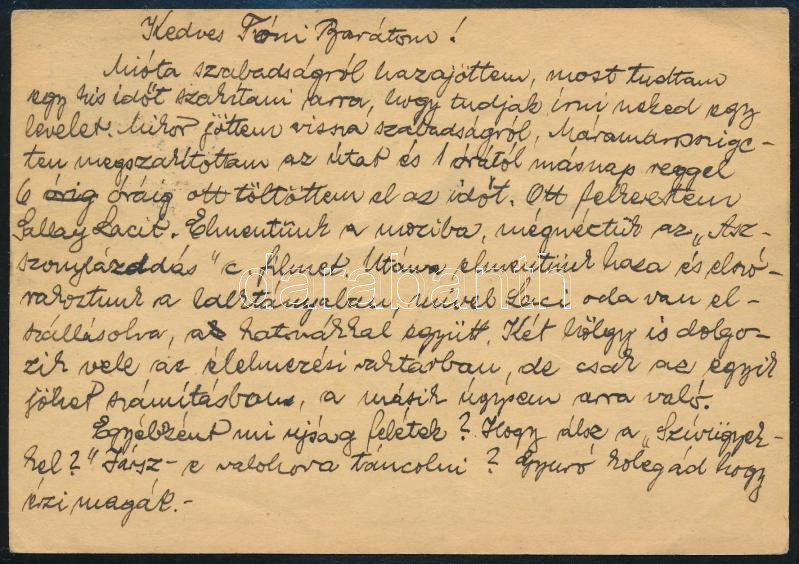 Kedves Tóni Barátom!
Mióta szabadságról hazajöttem, most tudtam
egy kis időt szakítani arra, hogy tudjak írni neked egy
levelet. Mikor jöttem vissza szabadságról, Máramarosszige-
ten megszakítottam az útat és 1 órától másnap reggel
6 órig óráig ott töltöttem el az időt. Ott felkerestem
Sallay Lacit. Elmentünk a moziba, megnéztük az „Asz-
szonylázadás" c filmet. Utána elmentünk haza és elszó-
rakoztunk a laktányában, mivel Laci oda van el-
szállásolva, a katonákkal együtt. Két hölgy is dolgo-
zik vele az élelmezési raktárban, de csak az egyik
jöhet számításban, a másik úgysem arra való.
Egyébként mi ujság felétek? Hogy álsz a „Szívügyek-
kel?" Jársz-e valohova táncolni? Gyuró kolegád hogy
érzi magát.-
databanth